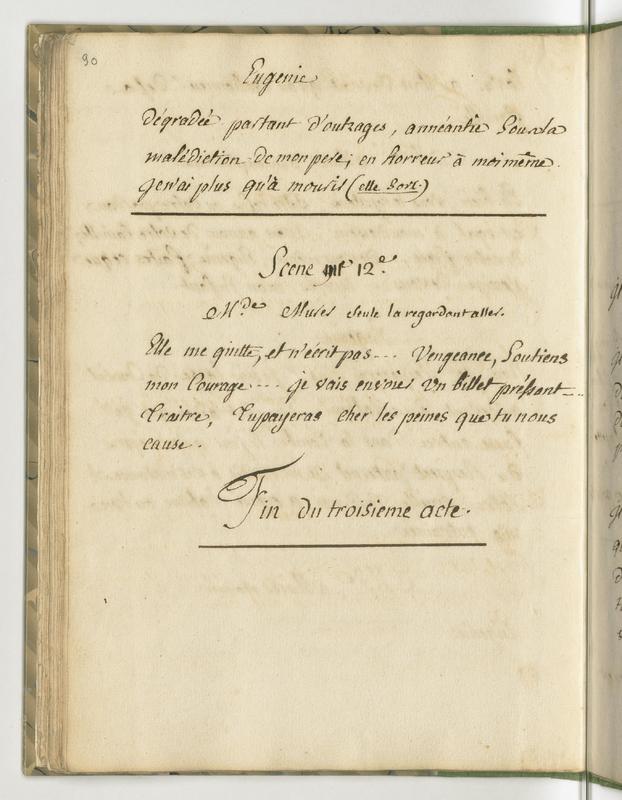 90
Eugenie
dégradée partant d'outrages, annéantie Sous la
malédiction de mon pere; en horreur à moi même
je n'ai plus qu'à mourir (elle Sort.)
Scene 12e.
Mde Murer seule la regardant aller.
Elle me quitte, et n'écrit pas --- Vengeance, Soutiens
mon Courage ---- je vais envoier un billet préssant--
traitre, tu payeras cher les peines que tu nous
cause.
Fin du troisieme acte.